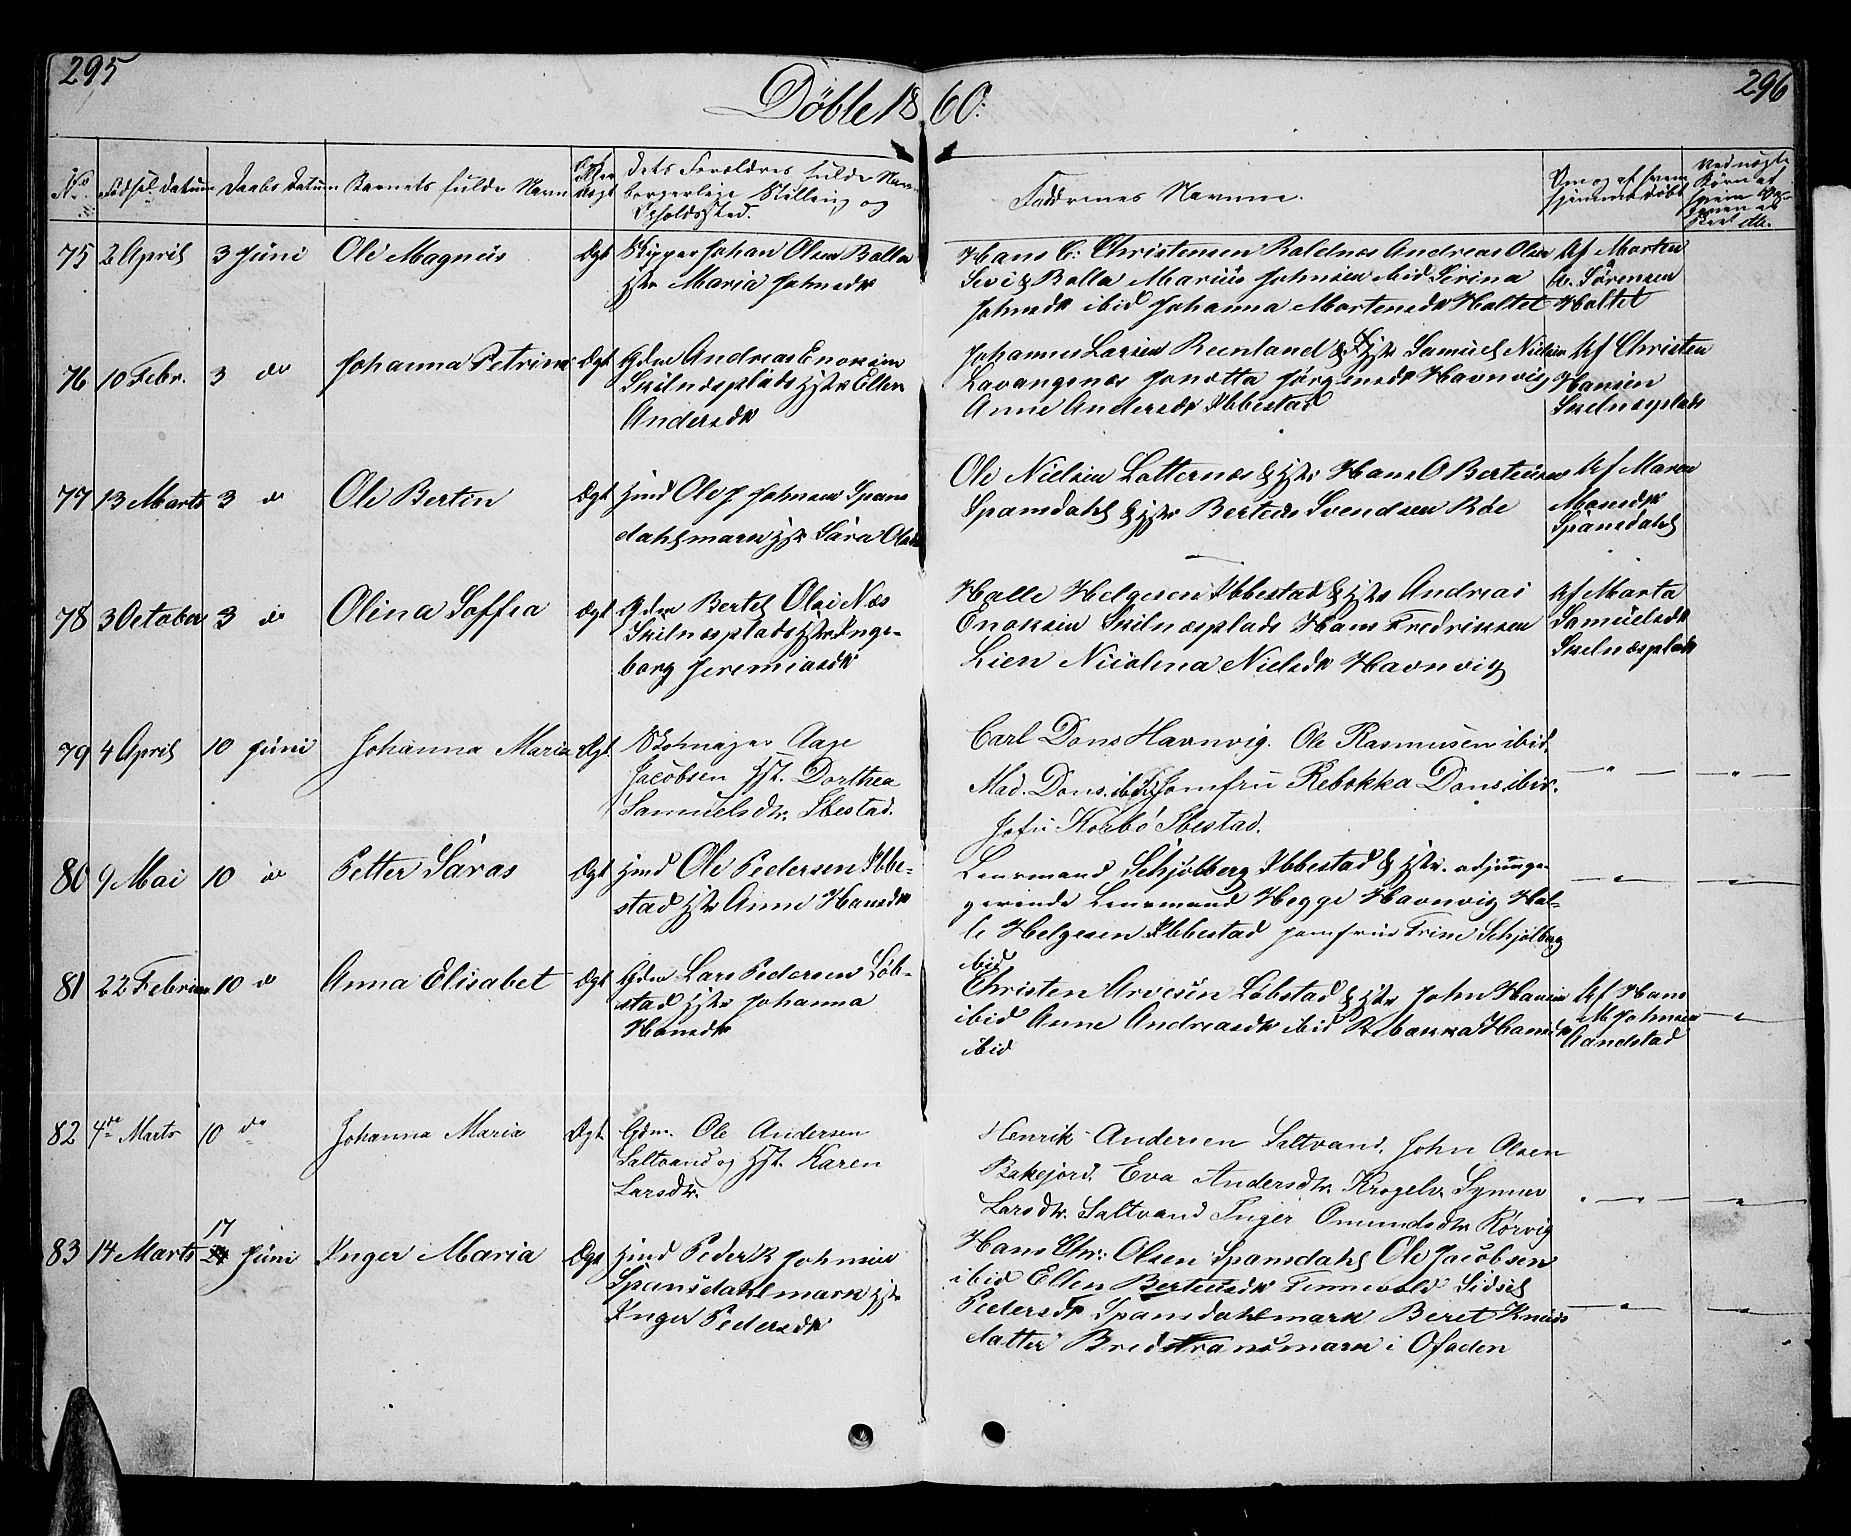 295
296
Döbte 1860.
No
Födsels Datum
Daabs Datum
Barnets fulde Navn
Ægte Uægt
Dets Forældres fulde Navn
borgerlige Stilling og
Opholdssted.
Faddrenes Navnne.
Om og af hvem
hjemmedöbt
Ved uægte
Börn af
hvem
75 2 April 3 Juni Ole Magnus Ægt Skipper Johan Olsen Balla
Hst Maria Johnsdt
Hans C. Christensen Baldnes Andreas Olsen
Balla Marius Johnsen ibid Serina
Johnsdt ibid Johanna Mortensdt Haltet
Af Morten
Sörensen
Haltet
76 10 Febr. 3 do Johanna Petrine Ægt Gdm Andreas Enoksen
Skilnæsplads Hst Ellen
Andersdt
Johannes Larsen Reenland & Hst Samuel Nielsen
Lavangsnæs Jonetta Jörgensdt Havnvig
Anne Andersdt Ibbestad
Af Christen
Hansen
Skelnæsplads
77 13 Marts 3 do Ole Bertin Ægt Hmd Ole J Johnsen Spans
dahlmark Hst Sara Olsdt
Ole Nielsen Lotternæs & Hst Hans O Berteusen
Spansdahl & Hst Berteus Svendsen Röe
Af Maren
Monsdt
Spansdahl
78 3 October 3 do Olina Soffia Ægt Gdm Bertel Olai Næs
Skilnæsplads Hst Inge-
borg Jeremiasdt
Halle Helgesen Ibbestad & Hst Andreas
Enoksen Skilnæsplads Hans Fredriksen
Lien Nicolina Nielsdt Havnvig
Af Marta
Samuelsdt
Skelnæsplads
79 4 April 10 Juni Johanna Maria Ægt. Skomager Aage
Jacobsen Hst. Dorthea
Samuelsdtr. Ibestad.
Carl Dons Havnvig. Ole Rasmusen ibid.
Mad. Dons. ibid Jomfru Rebekka Dons. ibid.
Jofr Korbö Ibestad.
80 9 Mai 10 do Petter Saras Ægt Hmd Ole Pedersen Ibbe-
stad Hst Anne Hansdt
Lensmand Schjölberg Ibbestad & Hst. adjunge-
gerende Lensmand Hegge Havnvig Hal-
le Helgesen Ibbestad Jomfrue Trine Schjölberg
ibid
81 22 Februar 10 do Anna Elisabet Ægt Gdm Lars Pedersen Löb-
stad Hst Johanna
Hansdt
Christen Arvesen Löbstad & Hst John Hansen
ibid Anne Andreasdt ibid Rebakka Hansdt
ibid
Af Hans
M Johnsen
Aandstad
82 4de Marts 10 do Johanna Maria Ægt Gdm. Ole Andersen
Saltvand og Hst. Karen
Larsdtr.
Henrik Andersen Saltvand. John Olsen
Bakejord. Eva Andersdtr. Krogelv. Synnev
Larsdtr. Saltvand Inger Omundsdtr Rörvig
83 14 Marts 17 Juni Inger Maria Ægt Hmd Peder K Johnsen
Spansdahlmark Hst
Inger Pedersdt
Hans Chr. Olsen Spansdahl Ole Jacobsen
ibid Ellen Berteusdt Tennevold Sidsel
Pedersdt Spansdahlmark Beret Knuds
datter Bredstrandsmark i Ofoden